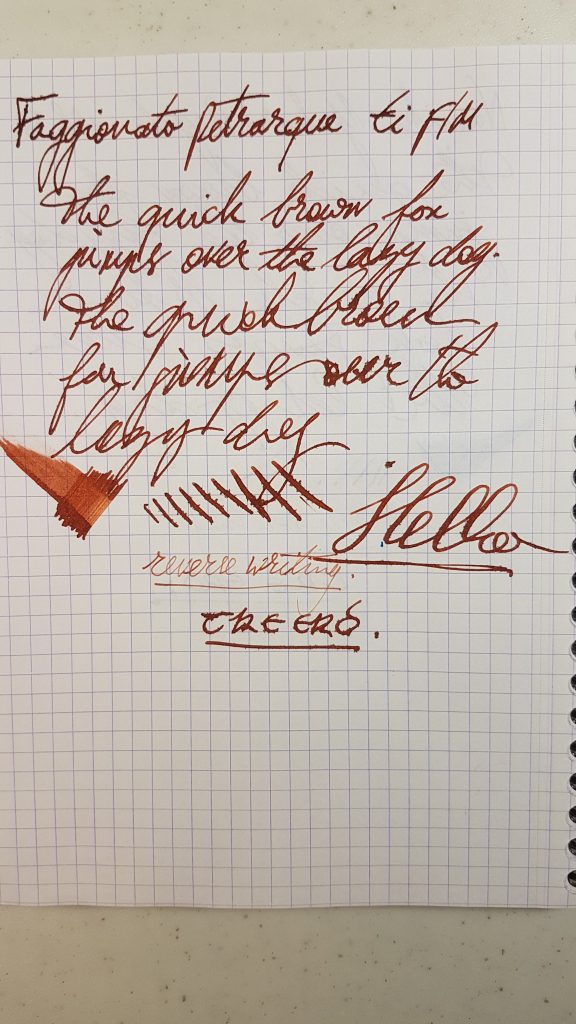 Faggionato Petrarque ti F/M
The quick brown fox
jumps over the lazy dog.
The quick brown
fox jumps over the
lazy dog
Hello
reverse writing.